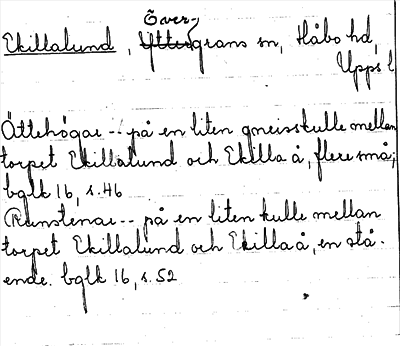 Över-
Ekillalund, Yttergrans sn, Håbo hd,
Upps l
Ättehögar -- på en liten gneisskulle mellan
torpet Ekillalund och Ekilla å, flere små;
bglk 16, s. 46
Runstenar -- på en liten kulle mellan
torpet Ekillalund och Ekilla å, en stå-
ende. bglk 16, s. 52